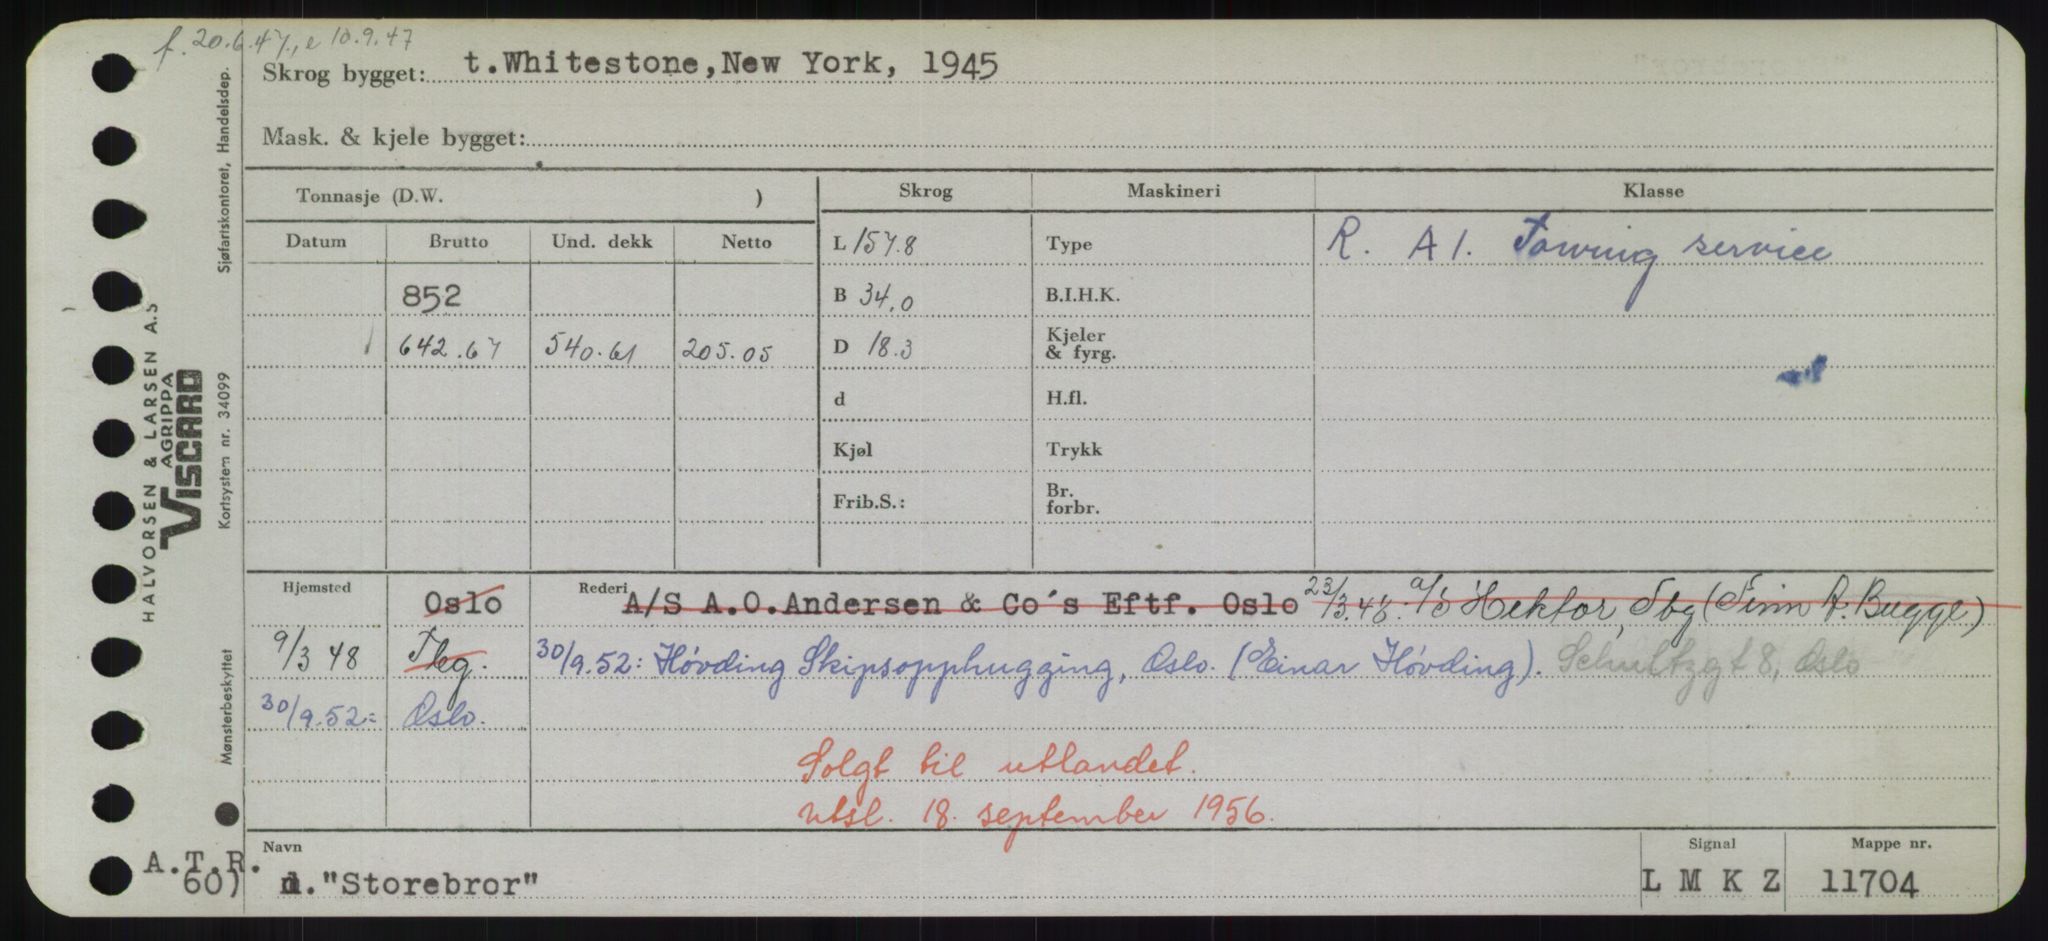 f. 20.6.47, e 10.9.47
Skrog bygget: t.Whitestone,New York, 1945
Mask. & kjele bygget:
Tonnasje (D.W. )
Skrog
Maskineri
Klasse
Datum Brutto Und. dekk Netto
L 157.8
Type
R. A 1. Towing service
852
B 34,0
B.I.H.K.
642.67 540.61 205.05
D 18.3
Kjeler
& fyrg.
d
H.fl.
Kjøl
Trykk
Frib.S.:
Br.
forbr.
Hjemsted
Oslo
Rederi
A/S A.O.Andersen & Co´s Eftf. Oslo 23/3.48. A/S Hektor, Tbg (Finn A. Bugge)
9/3 48 Tbg.
30/9.52: Høvding Skipsopphugging, Oslo. (Einar Høvding). Schultzgt 8, Oslo
30/9.52= Oslo.
Solgt til utlandet.
Utsl. 18. september 1956.
Navn
Signal
Mappe nr.
A.T.R.
60) m."Storebror"
L M K Z
11704
Sjøfartskontoret, Handelsdep.
HALVORSEN & LARSEN A.S
AGRIPPA
VISCARD
Kortsystem nr. 34099
Mønsterbeskyttet